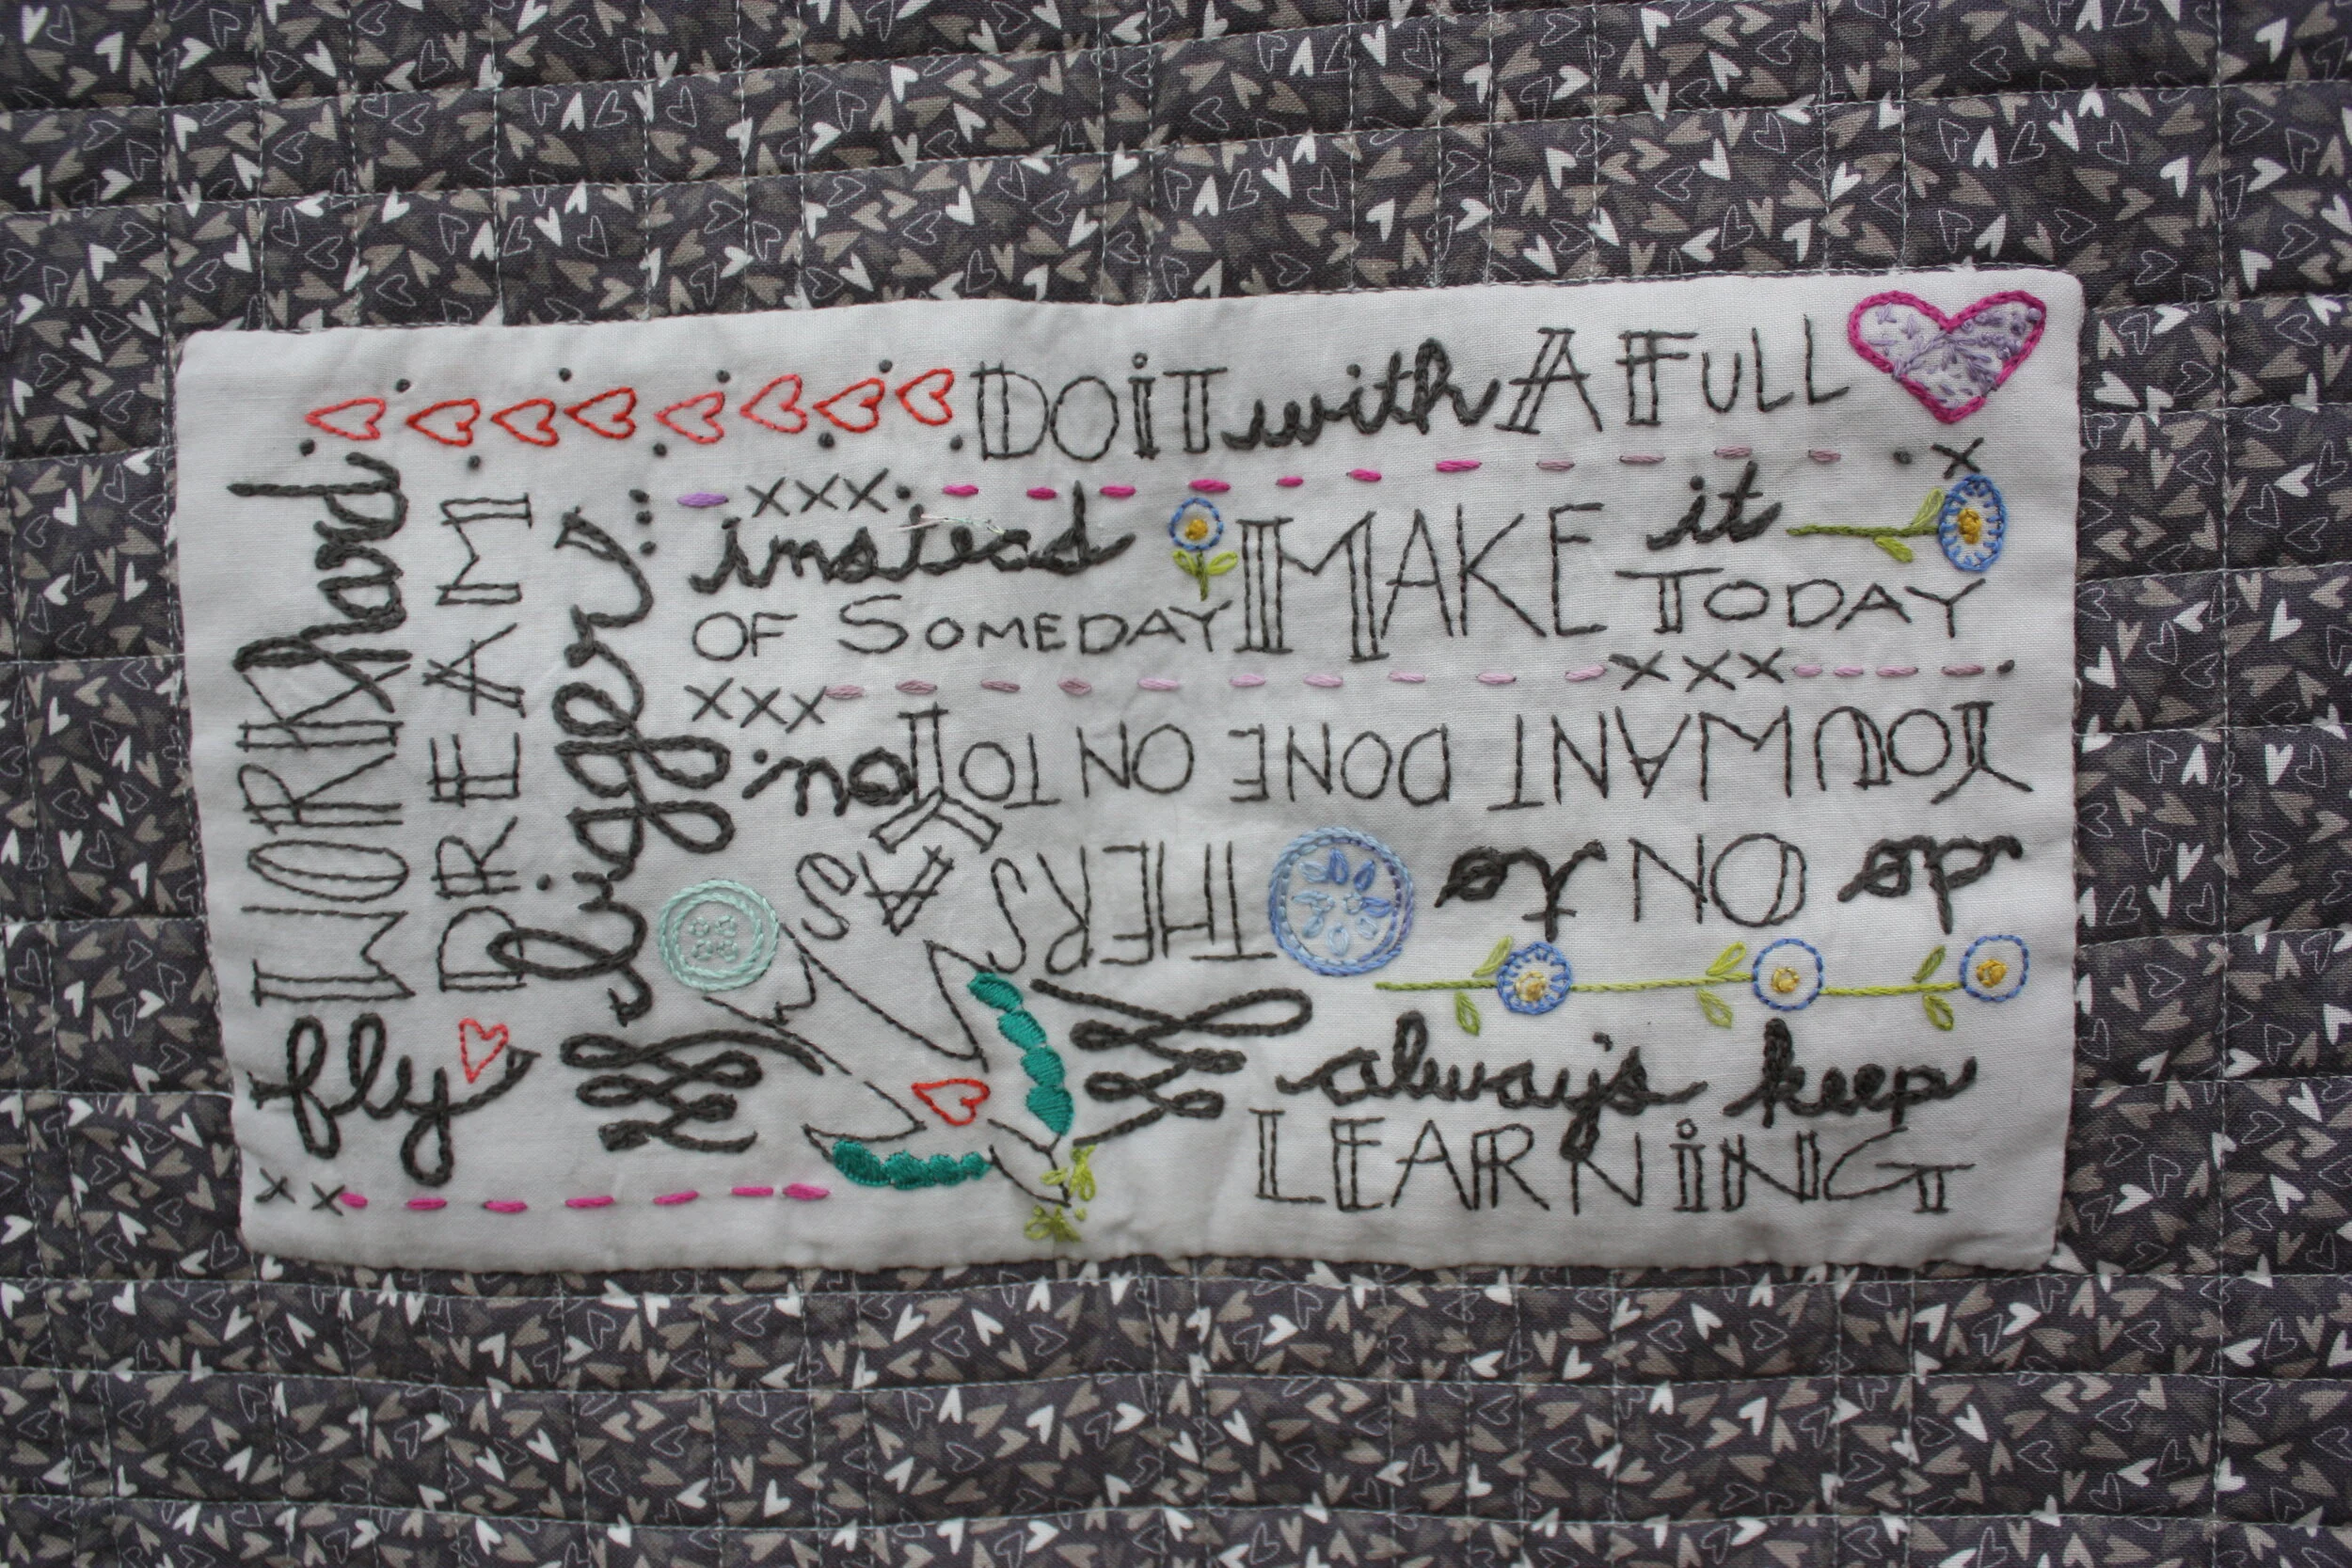 DO iT with A FULL
instead
OF SOMEDAY
MAKE it
TODAY
do ON to THERS AS
YOU WANT DONE ON TO You
always keep
LEARNiNG
WORK hard
DREAM
bigger
fly